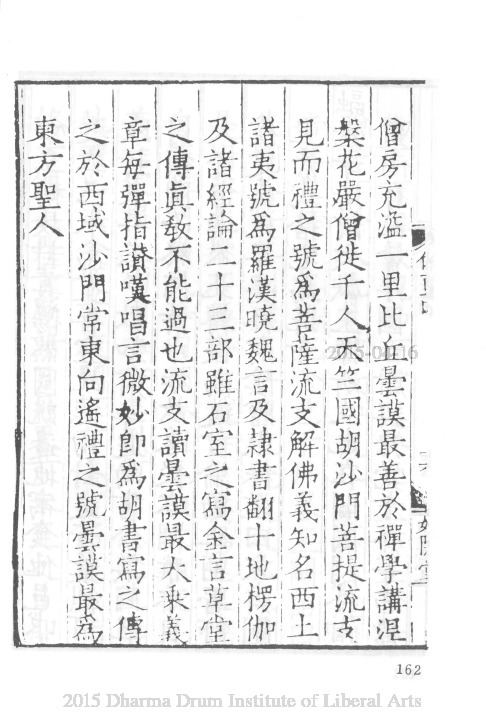 僧房充溢一里比丘曇謨最善於禪學講涅
槃花嚴僧徒千人天竺國胡沙門菩提流支
見而禮之號爲菩薩流支解佛義知名西土
諸夷號爲羅漢曉魏言及隷書翻十地楞伽
及諸經論二十三部雖石室之寫金言草堂
之傳眞教不能過也流支讀曇謨最大乗義
章每彈指讃嘆唱言微妙卽爲胡書寫之傳
之於西域沙門常東向遙禮之號曇謨最爲
東方聖人
2015-04-16
162
2015 Dharma Drum Institute of Liberal Arts